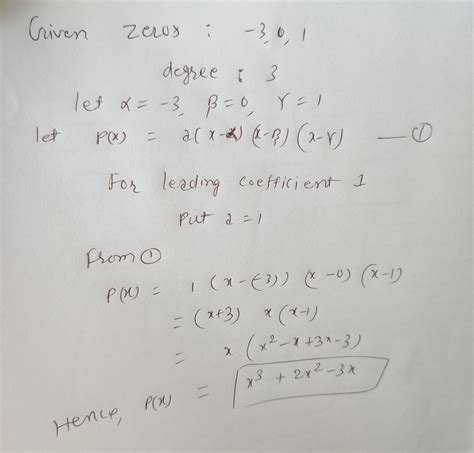 Given zeros : -3, 0, 1
degree : 3
let α = -3, β = 0, γ = 1
let P(x) = a(x-α)(x-β)(x-γ) — ①
For leading coefficient 1
Put a = 1
From ①
P(x) = 1 (x-(-3)) (x-0) (x-1)
= (x+3) x (x-1)
= x (x²-x+3x-3)
Hence, P(x) = x³ + 2x² - 3x